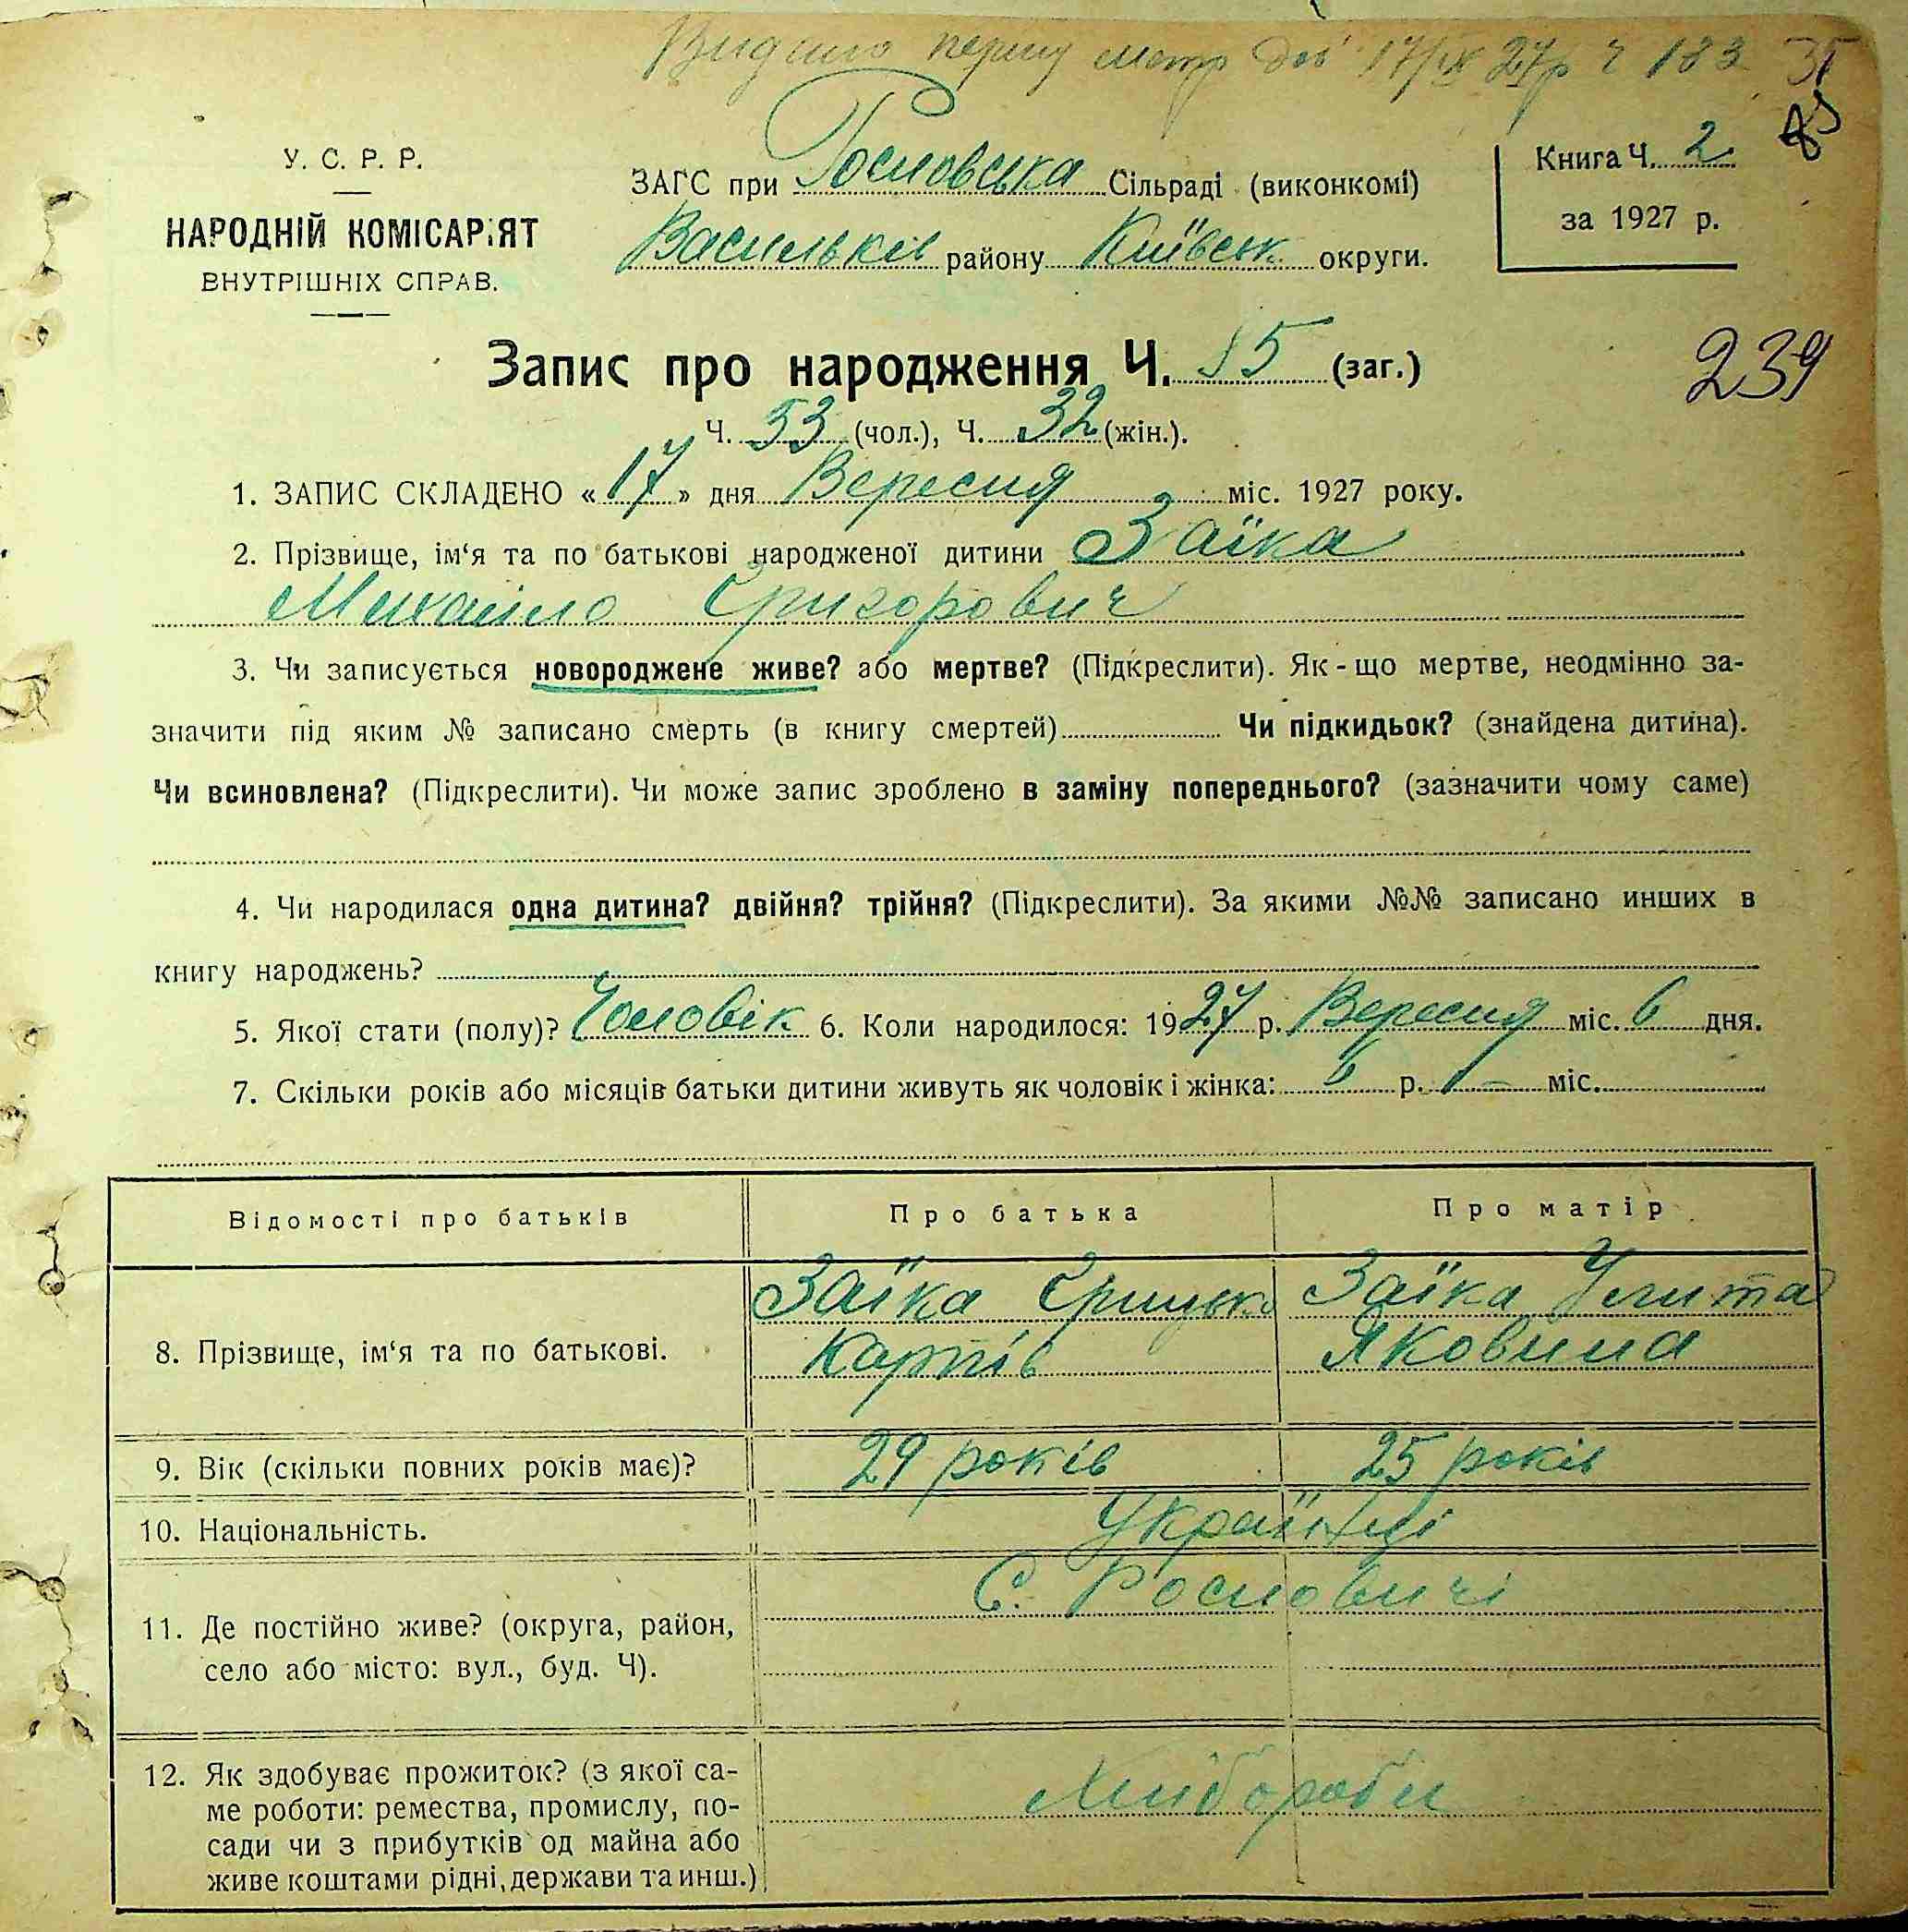 Видано першу метр дов 17/IX 27р Ч 183
У. С. Р. Р.
НАРОДНІЙ КОМІСАРІЯТ
ВНУТРІШНІХ СПРАВ.
ЗАГС при Росповська Сільраді (виконкомі)
Васильків району Київськ. округи.
Книга Ч. 2.
за 1927 р.
Запис про народження Ч. 15 (заг.)
239
Ч. 53 (чол.), Ч. 32 (жін.).
1. ЗАПИС СКЛАДЕНО «17» дня Вересня міс. 1927 року.
2. Прізвище, ім‘я та по батькові народженої дитини Заїка
Михайло Григорович
3. Чи записується новороджене живе? або мертве? (Підкреслити). Як-що мертве, неодмінно за-
значити під яким № записано смерть (в книгу смертей) Чи підкидьок? (знайдена дитина).
Чи всиновлена? (Підкреслити). Чи може запис зроблено в заміну попереднього? (зазначити чому саме)
4. Чи народилася одна дитина? двійня? трійня? (Підкреслити). За якими №№ записано инших в
книгу народжень?
5. Якої стати (полу)? Чоловік 6. Коли народилося: 1927 р. Вересня міс. 6 дня.
7. Скільки років або місяців батьки дитини живуть як чоловік і жінка: 6 р. – міс.
Відомості про батьків Про батька Про матір
Заїка Грицько Заїка Улита
8. Прізвище, ім‘я та по батькові. Карпів Яковина
9. Вік (скільки повних років має)? 29 років 25 років
10. Національність. Українці
С. Росновичі
11. Де постійно живе? (округа, район,
село або місто: вул., буд. Ч).
12. Як здобуває прожиток? (з якої са-
ме роботи: ремества, промислу, по- Хліброби
сади чи з прибутків од майна або
живе коштами рідні, держави та инш.)